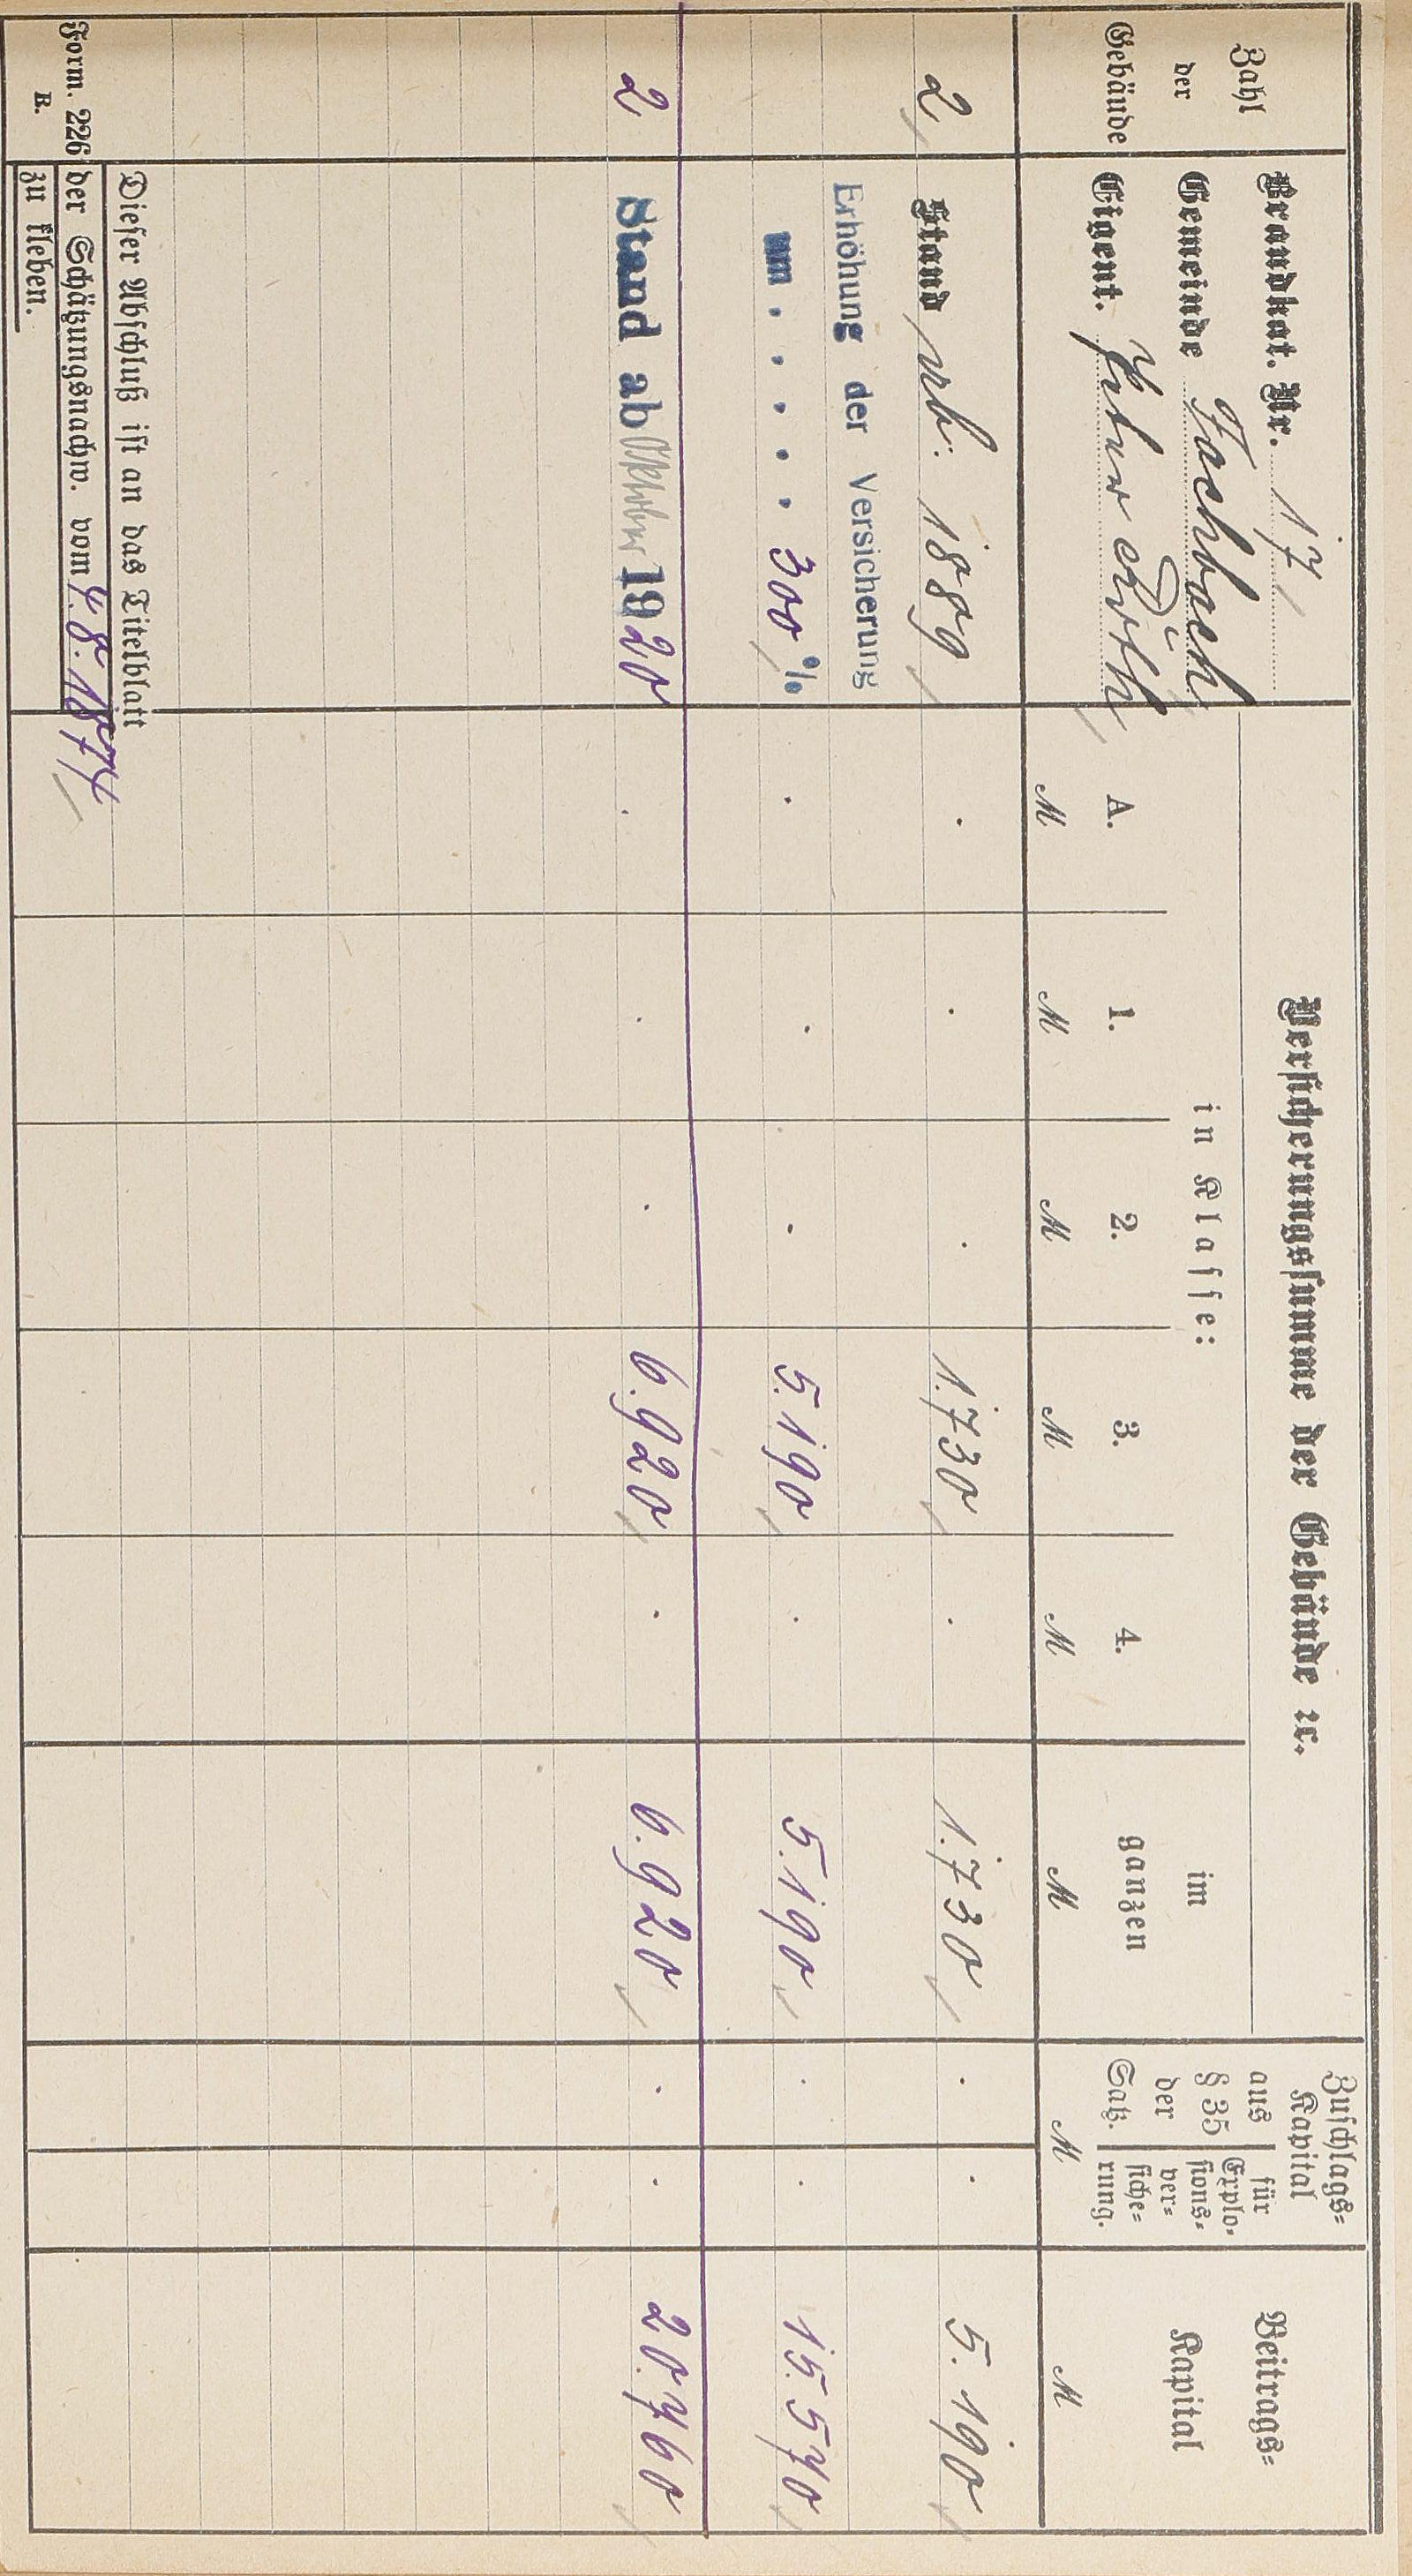 Zahl
der
Gebäude
Brandkat. Nr. 17
Gemeinde Fachbach
Eigent. Peter Röth
Versicherungssumme der Gebäude ꝛc.
in Klasse:
A. 1. 2. 3. 4.
im
ganzen
Zuschlags-
Kapital
aus
§ 35
der
Satz.
für
Explo-
sions-
ver-
siche-
rung.
Beitrags-
Kapital
ℳ ℳ ℳ ℳ ℳ ℳ ℳ ℳ
2 Stand 1889 . . . 1.730 . 1.730 . . 5.190
Erhöhung der Versicherung
um . . . . . 300 % . . . 5.190 . 5.190 . . 15.570
2 Stand ab Oktober 1920 . . . 6.920 . 6.920 . . 20.760
Dieser Abschluß ist an das Titelblatt
Form. 226 der Schätzungsnachw. vom 4.8.1874
B. zu kleben.